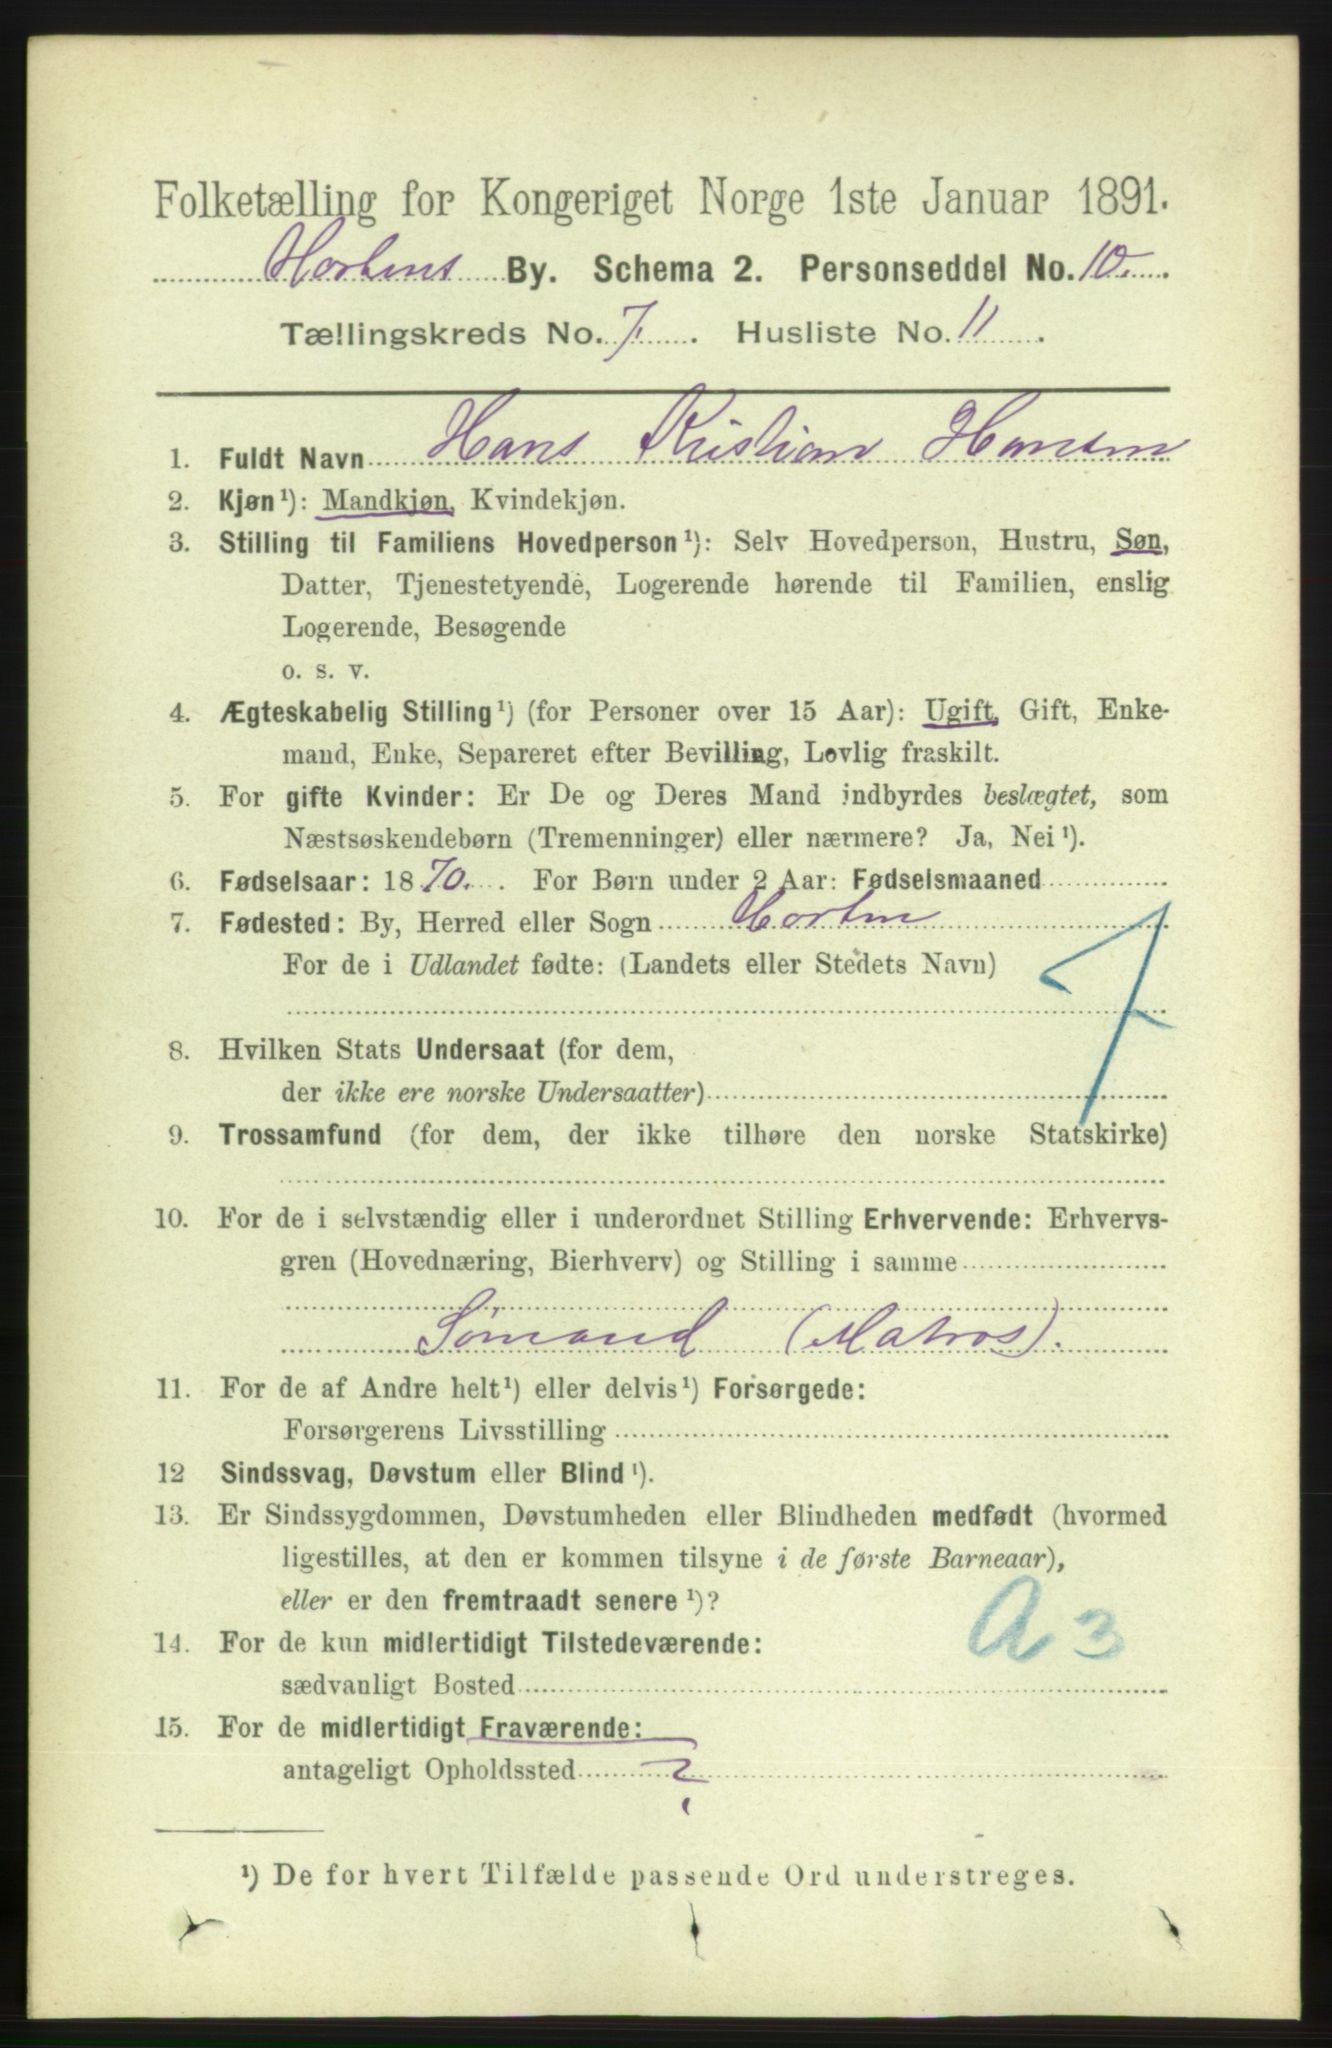 Folketælling for Kongeriget Norge 1ste Januar 1891.
Hortens By. Schema 2. Personseddel No. 10.
Tællingskreds No. 7. Husliste No. 11.
1. Fuldt Navn Hans Kristian Hansen
2. Kjøn¹): Mandkjøn, Kvindekjøn.
3. Stilling til Familiens Hovedperson¹): Selv Hovedperson, Hustru, Søn,
Datter, Tjenestetyende, Logerende hørende til Familien, enslig
Logerende, Besøgende
o. s. v.
4. Ægteskabelig Stilling¹) (for Personer over 15 Aar): Ugift, Gift, Enke-
mand, Enke, Separeret efter Bevilling, Lovlig fraskilt.
5. For gifte Kvinder: Er De og Deres Mand indbyrdes beslægtet, som
Næstsøskendebørn (Tremenninger) eller nærmere? Ja, Nei¹).
6. Fødselsaar: 1870. For Børn under 2 Aar: Fødselsmaaned
7. Fødested: By, Herred eller Sogn Horten
For de i Udlandet fødte: (Landets eller Stedets Navn)
8. Hvilken Stats Undersaat (for dem,
der ikke ere norske Undersaatter)
9. Trossamfund (for dem, der ikke tilhøre den norske Statskirke)
10. For de i selvstændig eller i underordnet Stilling Erhvervende: Erhvervs-
gren (Hovednæring, Bierhverv) og Stilling i samme
Sømand (Matros).
11. For de af Andre helt¹) eller delvis¹) Forsørgede:
Forsørgerens Livsstilling
12 Sindssvag, Døvstum eller Blind¹).
13. Er Sindssygdommen, Døvstumheden eller Blindheden medfødt (hvormed
ligestilles, at den er kommen tilsyne i de første Barneaar),
eller er den fremtraadt senere¹)?
A 3
14. For de kun midlertidigt Tilstedeværende:
sædvanligt Bosted
15. For de midlertidigt Fraværende:
antageligt Opholdssted ?
¹) De for hvert Tilfælde passende Ord understreges.